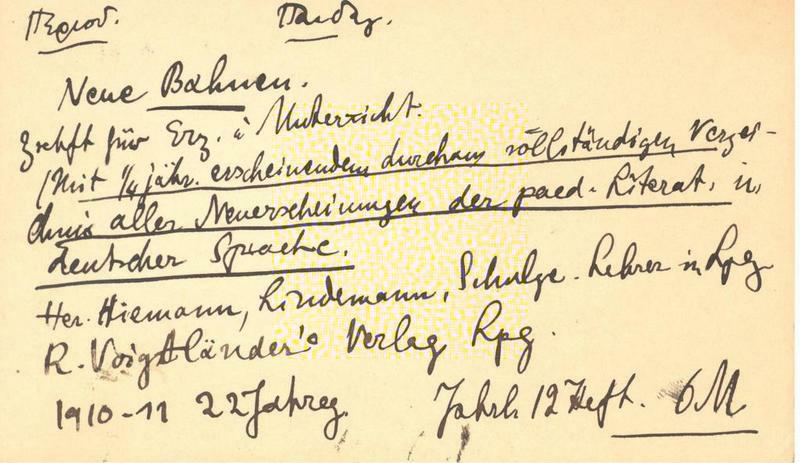 Περιοδ. Παιδαγ.
Neue Bahnen.
Zschft für Erz. u Unterricht.
(Mit 1/4 jähr. erscheinendem durchaus vollständigen Verzei-
chnis aller Neuerscheinungen der paed. Literat. in
deutscher Sprache.
Her. Hiemann, Lindemann, Schulze. Lehrer in Lpzg
R. Voigtländer's Verlag Lpg.
1910-11 22 Jahrg. Jährl. 12 Heft. 6 M